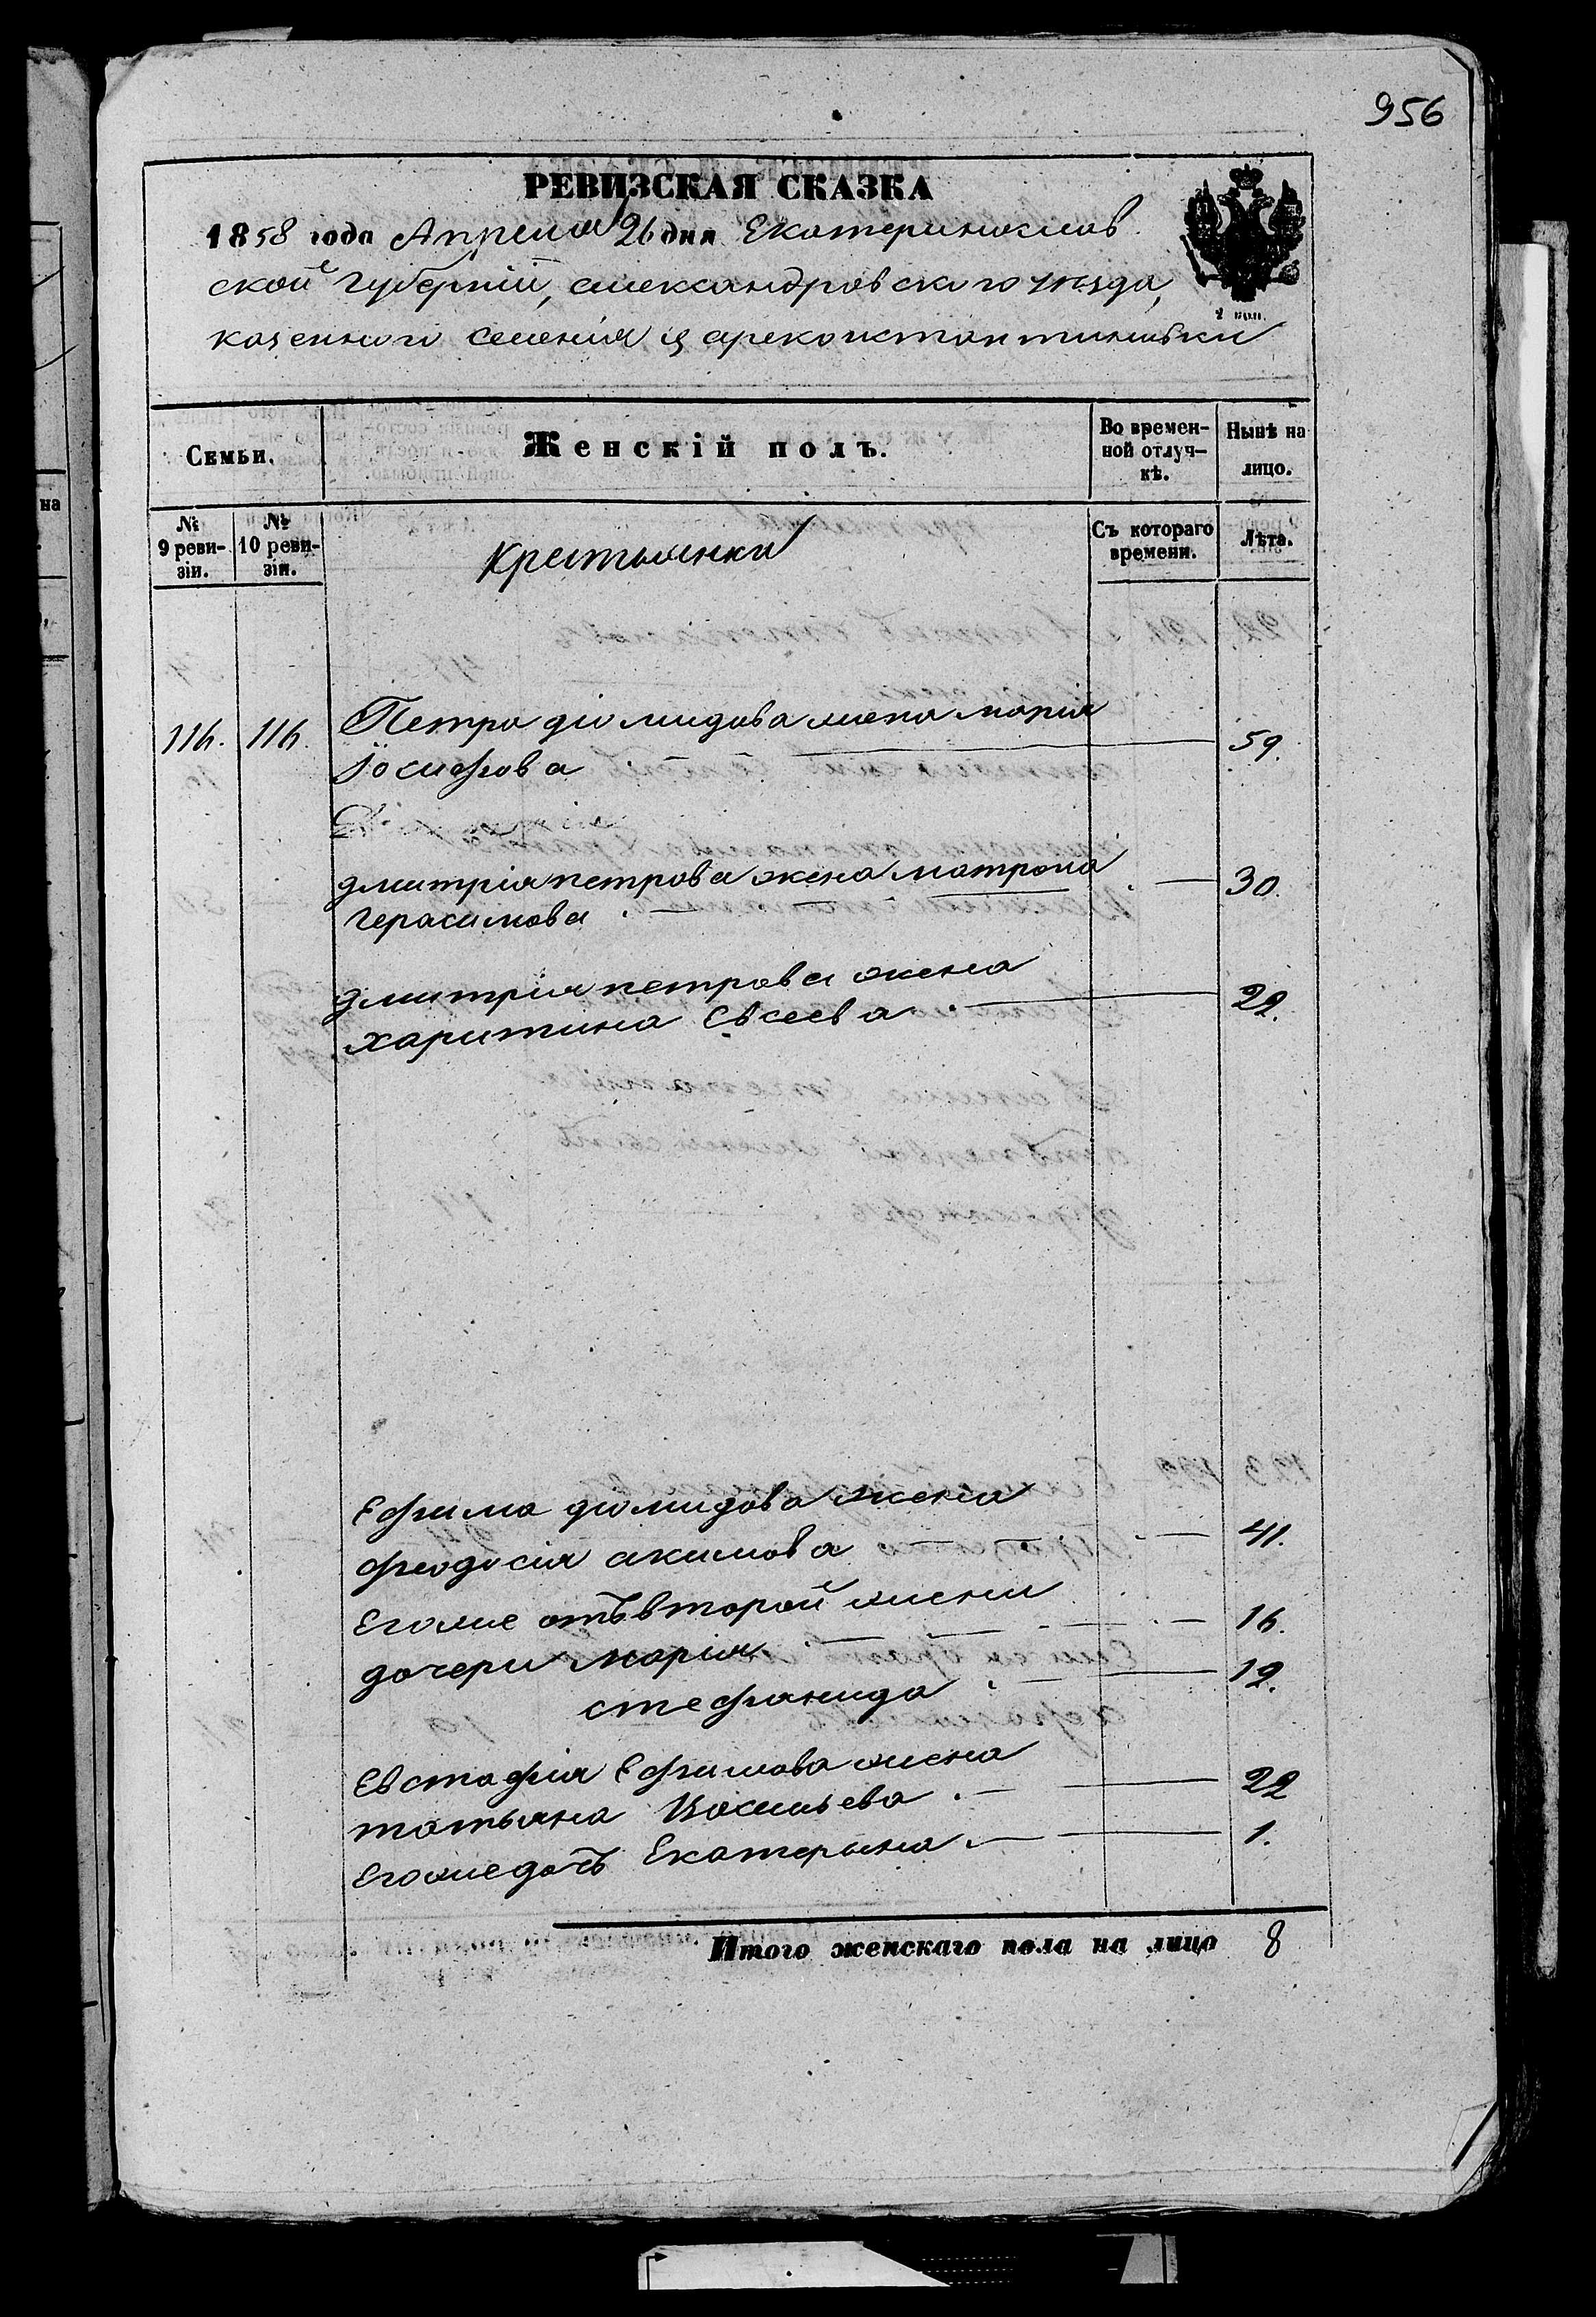 956
РЕВИЗСКАЯ СКАЗКА
1858 года Апреля 26 дня Екатеринослав
ской Губерніи, александровского уѣзда,
казенного селенія Цареконстантиновки
2 коп.
Семьи. Женскій полъ. Во времен-
ной отлуч-
кѣ. Нынѣ на
лицо.
№
9 реви-
зіи. №
10 реви-
зіи. Крестьянки Съ котораго
времени. Лѣта.
116. 116. Петра діомидова жена марія
Іосифова 59.
дмитрія петрова жена матрона 30.
Герасимова
дмитрія петрова жена
харитина Евсеева 22.
Ефима діомидова жена
феодосія акимова 41.
Егоже отъ второй жены
дочери марія 16.
стефанида 12.
Евстафія Ефимова жена
татьяна Васильева 22
Егоже дочь Екатерына 1.
Итого женскаго пола на лицо 8